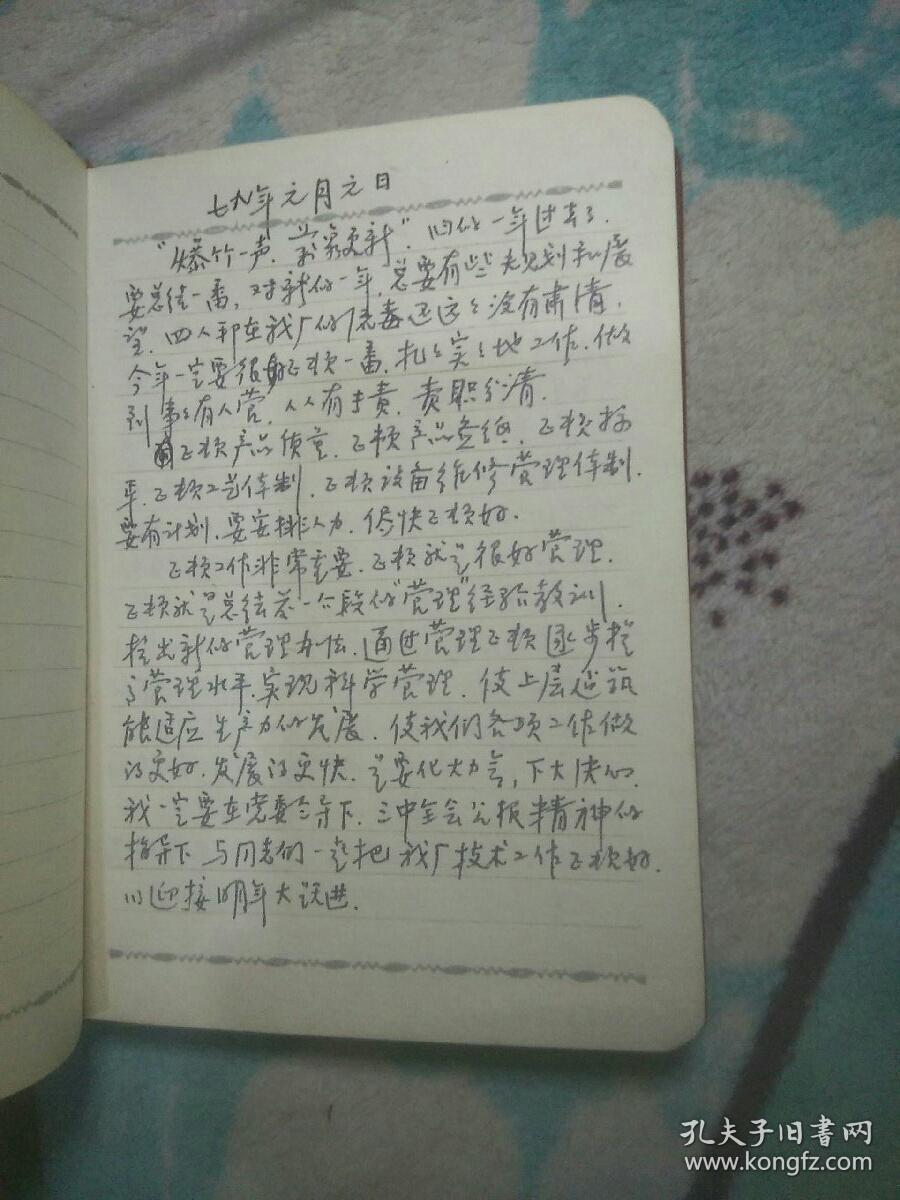 七九年元月元日
"爆竹一声，万象更新"．旧的一年过去了．
要总结一番，对新的一年，总要有些规划和展
望．四人邦在我厂的流毒还远远没有肃清，
今年一定要很好正顿一番，扎扎实实地工作．做
到事事有人管，人人有专责，责职分清．
正顿产品质量．正顿产品，正顿
正顿工艺体制．正顿设备维修管理体制．
要有计划，要安排人力．尽快正顿好．
正顿工作非常重要．正顿就是很好管理．
正顿就是总结前一阶段的"管理"经验教训．
找出新的管理办法．通过管理正顿逐步提
高管理水平，实现科学管理．使上层建筑
能适应生产力的发展．使我们各项工作做
的更好．发展的更快．是要化大力气，下大决心．
我一定要在党委领导下．三中全会公报精神的
指导下 与同志们一起把我厂技术工作正顿好．
以迎接明年大跃进．
孔夫子旧书网
www.kongfz.com